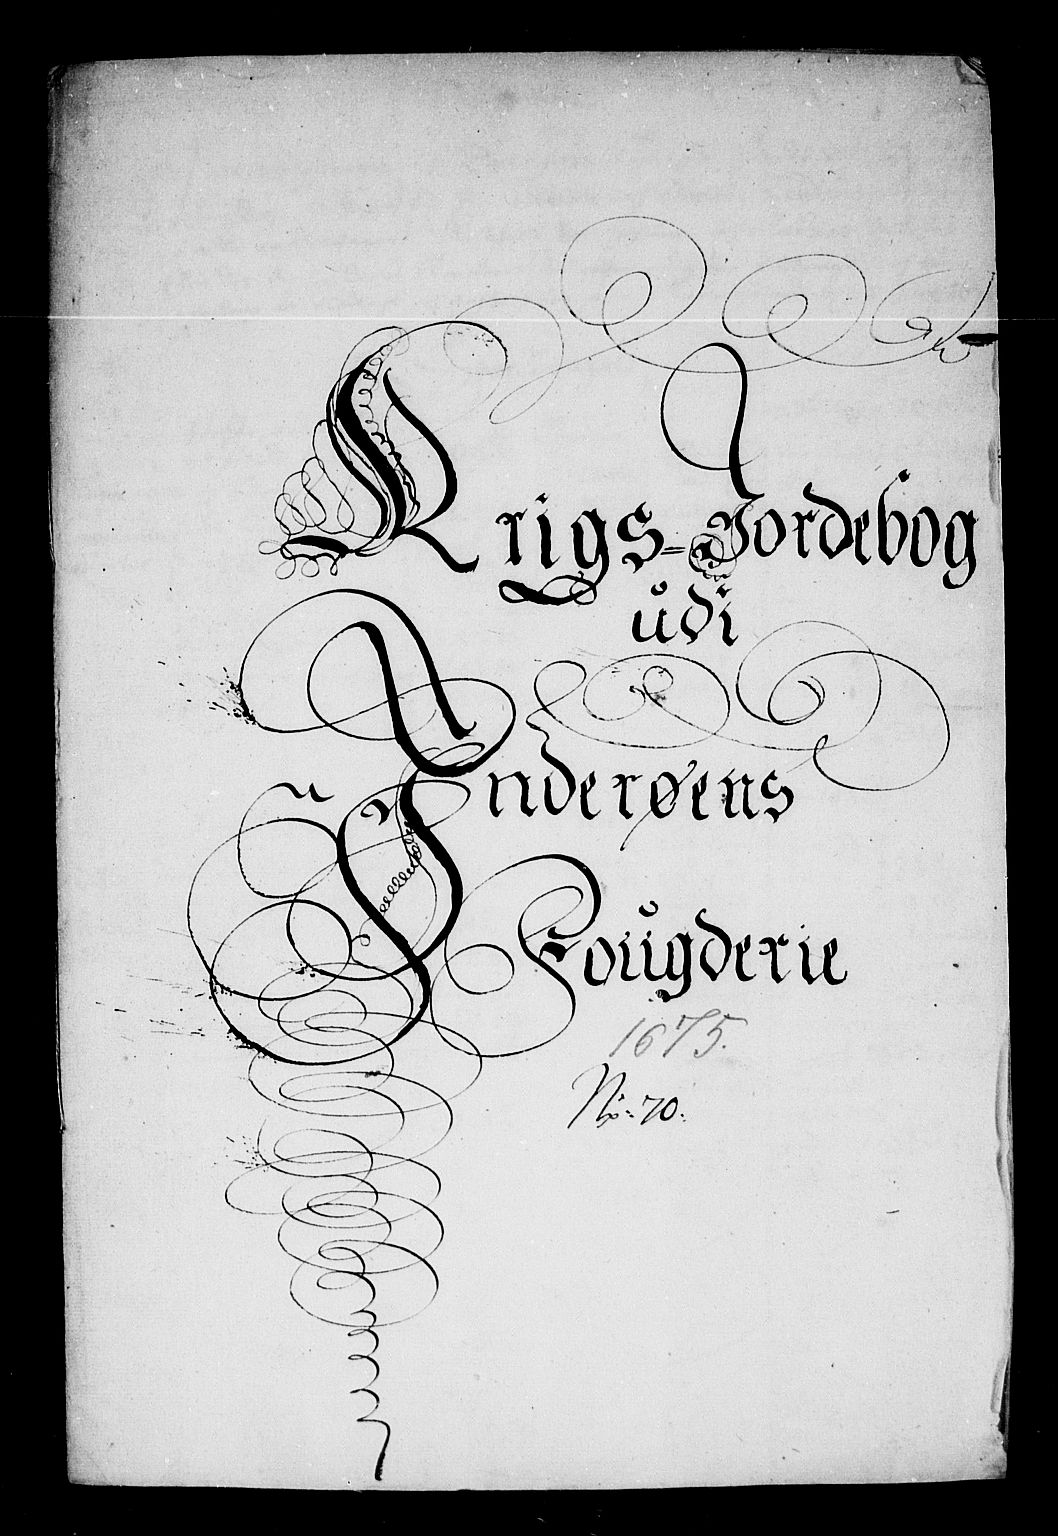 Krigs-Jordebog
udi
Inderøens
Fougderie
1675.
No: 70.